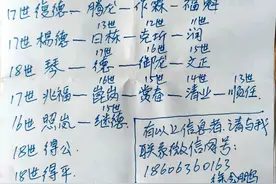 17世 德 — 腾龙 — 作森 — 福
13世
17世 杨德 — 日栋 — 克珩 — 润
17世 16世 15世
18世 琴 — 德 — 御龙 — 文正
16世 15世 14世 13世
17世 兆福 — 岚 — 赏春 — 清业 — 顺任
15世
16世 照岚 — 继德
18世 得公
18世 得平
有以上信息者,请与我
联系微信同号:
18606360163